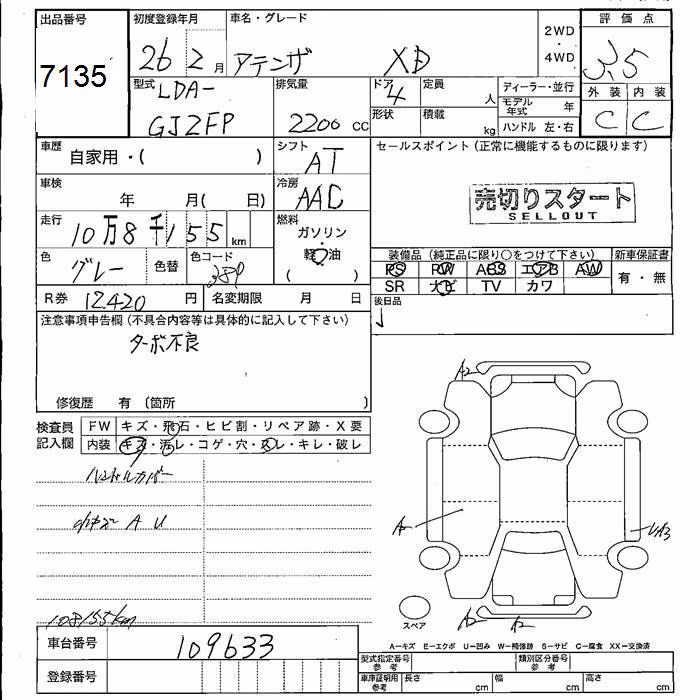 出品番号 初度登録年月 車名・グレード 2WD・4WD 評価点
7135 26 2月 アテンザ XD 3.5
型式 LDA-GJ2FP 排気量 2200 cc
ドア 4 定員 人 ディーラー・並行 外装 内装
形状 積載 kg モデル年式 年 C C
ハンドル 左・右
車歴 自家用・( ) シフト AT セールスポイント (正常に機能するものに限ります)
車検 年 月( 日) 冷房 AAC 売切りスタート
SELLOUT
走行 10万8千155km 燃料 ガソリン・軽油 ( )
装備品 (純正品に限り○をつけて下さい) 新車保証書
色 グレー 色替 色コード PS PW ABS エアB AW 有・無
SR ナビ TV カワ
R券 12,420 円 名変期限 月 日 後日品
注意事項申告欄 (不具合内容等は具体的に記入して下さい)
ターボ不良
修復歴 有 (箇所 )
検査員記入欄 FW キズ・飛石・ヒビ割・リペア跡・X要
内装 キズ・汚レ・コゲ・穴・スレ・キレ・破レ
ハンドルカバー
小キズ A U
108155km
A2
A
UA3
A2
スペア
A−キズ E−エクボ U−凹み W−補修跡 S−サビ C−腐食 XX−交換済
車台番号 109633
登録番号
型式指定番号 参考 類別区分番号 参考
車庫証明用 参考 長さ cm 幅 cm 高さ cm